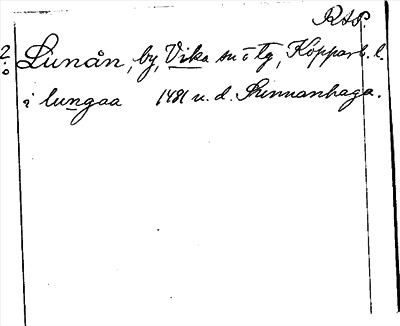 RAP.
2:o Lünån, by, Vika sn o tg, Kopparb. l.
i lungaa 1481 u. d. Kinnanhaga.